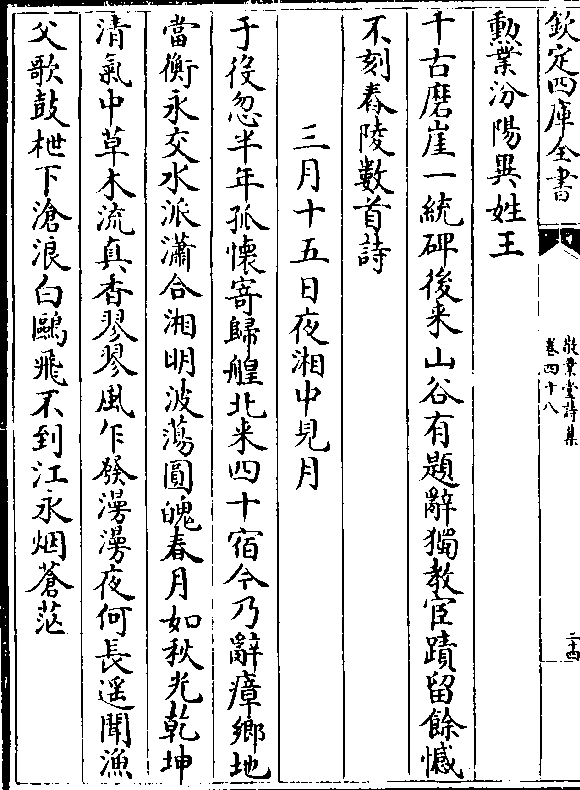 欽定四庫全書
敬業堂詩集
卷四十八
二十四
勲業汾陽異姓王
千古磨崖一統碑後来山谷有題辭獨教宦蹟留餘憾
不刻舂陵數首詩
三月十五日夜湘中見月
于役忽半年孤懷寄歸艎北来四十宿今乃辭瘴鄉地
當衡永交水派瀟合湘明波蕩圓魄春月如秋光乾坤
清氣中草木流真香翏翏風乍發漫漫夜何長遥聞漁
父歌鼓枻下滄浪白鷗飛不到江永烟蒼茫